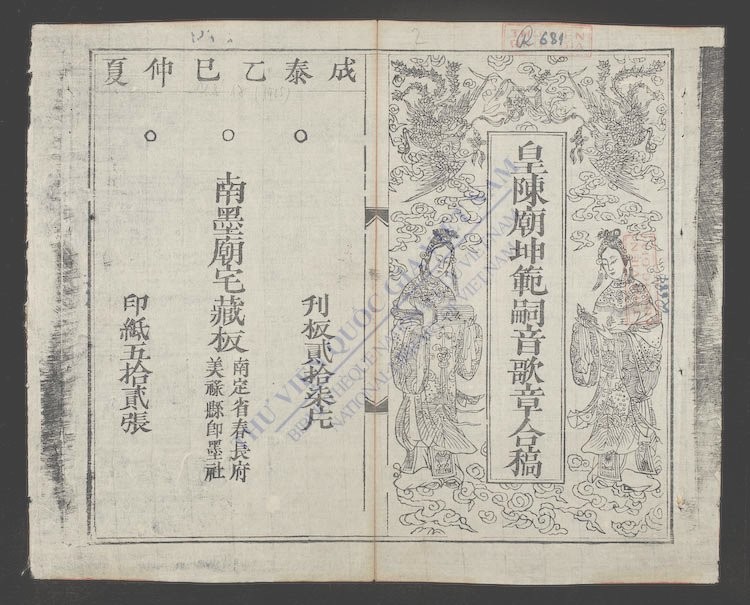 R 681
2
皇陳廟坤範嗣音歌章合稿
成泰乙巳仲夏
刊板貳拾柒片
南墨廟宅藏板
南定省春長府
美祿縣即墨社
印紙五拾貳張
THƯ VIỆN QUỐC GIA VIỆT NAM